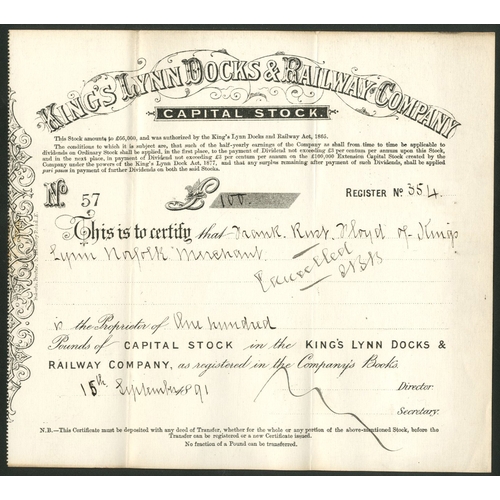 KING'S LYNN DOCKS & RAILWAY COMPANY
CAPITAL STOCK.
This Stock amounts to £66,000, and was authorized by the King's Lynn Docks and Railway Act, 1865.
The conditions to which it is subject are, that such of the half-yearly earnings of the Company as shall from time to time be applicable to
dividends on Ordinary Stock shall be applied, in the first place, to the payment of Dividend not exceeding £3 per centum per annum upon this Stock,
and in the next place, in payment of Dividend not exceeding £3 per centum per annum on the £100,000 Extension Capital Stock created by the
Company under the powers of the King's Lynn Dock Act, 1877, and that any surplus remaining after payment of such Dividends, shall be applied
pari passu in payment of further Dividends on both the said Stocks.
No 57 £ 100. REGISTER No 354.
This is to certify that Frank Rust Floyd of Kings
Lynn Norfolk Merchant
Cancelled
is the Proprietor of One hundred
Pounds of CAPITAL STOCK in the KING'S LYNN DOCKS &
RAILWAY COMPANY, as registered in the Company's Books.
15th September 1891
Director.
Secretary.
N.B.—This Certificate must be deposited with any deed of Transfer, whether for the whole or any portion of the above-mentioned Stock, before the
Transfer can be registered or a new Certificate issued.
No fraction of a Pound can be transferred.